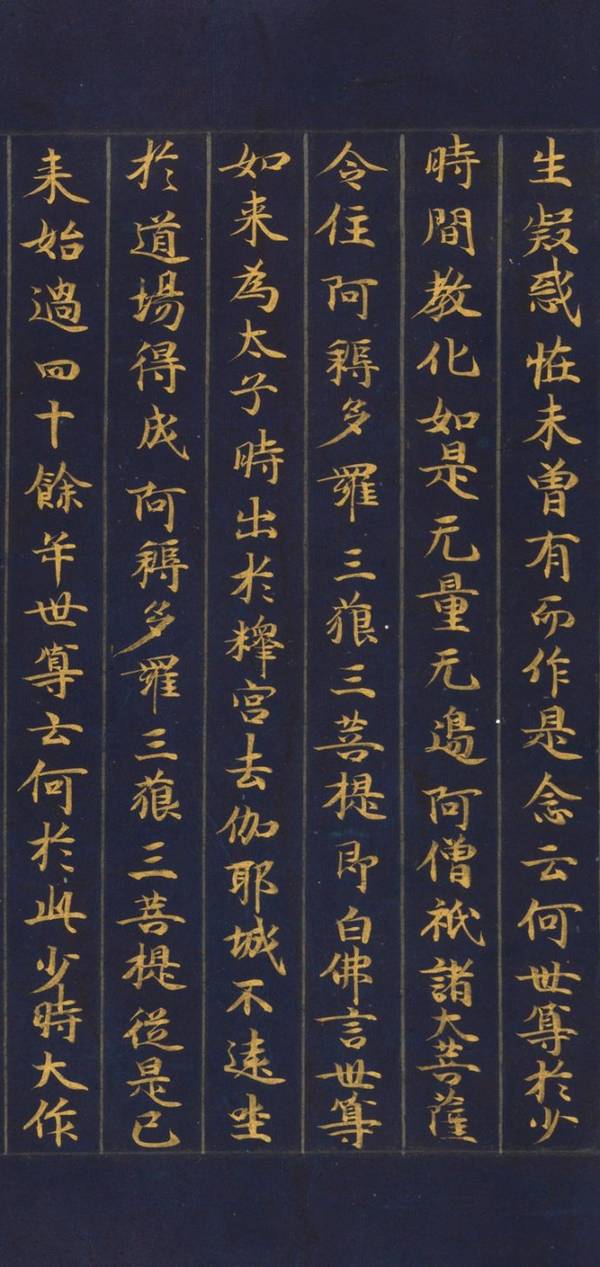 生疑惑怪未曾有而作是念云何世尊於少
時間教化如是无量无邊阿僧祇諸大菩薩
令住阿耨多羅三藐三菩提即白佛言世尊
如来為太子時出於釋宮去伽耶城不遠坐
於道場得成阿耨多羅三藐三菩提從是已
来始過四十餘年世尊云何於此少時大作